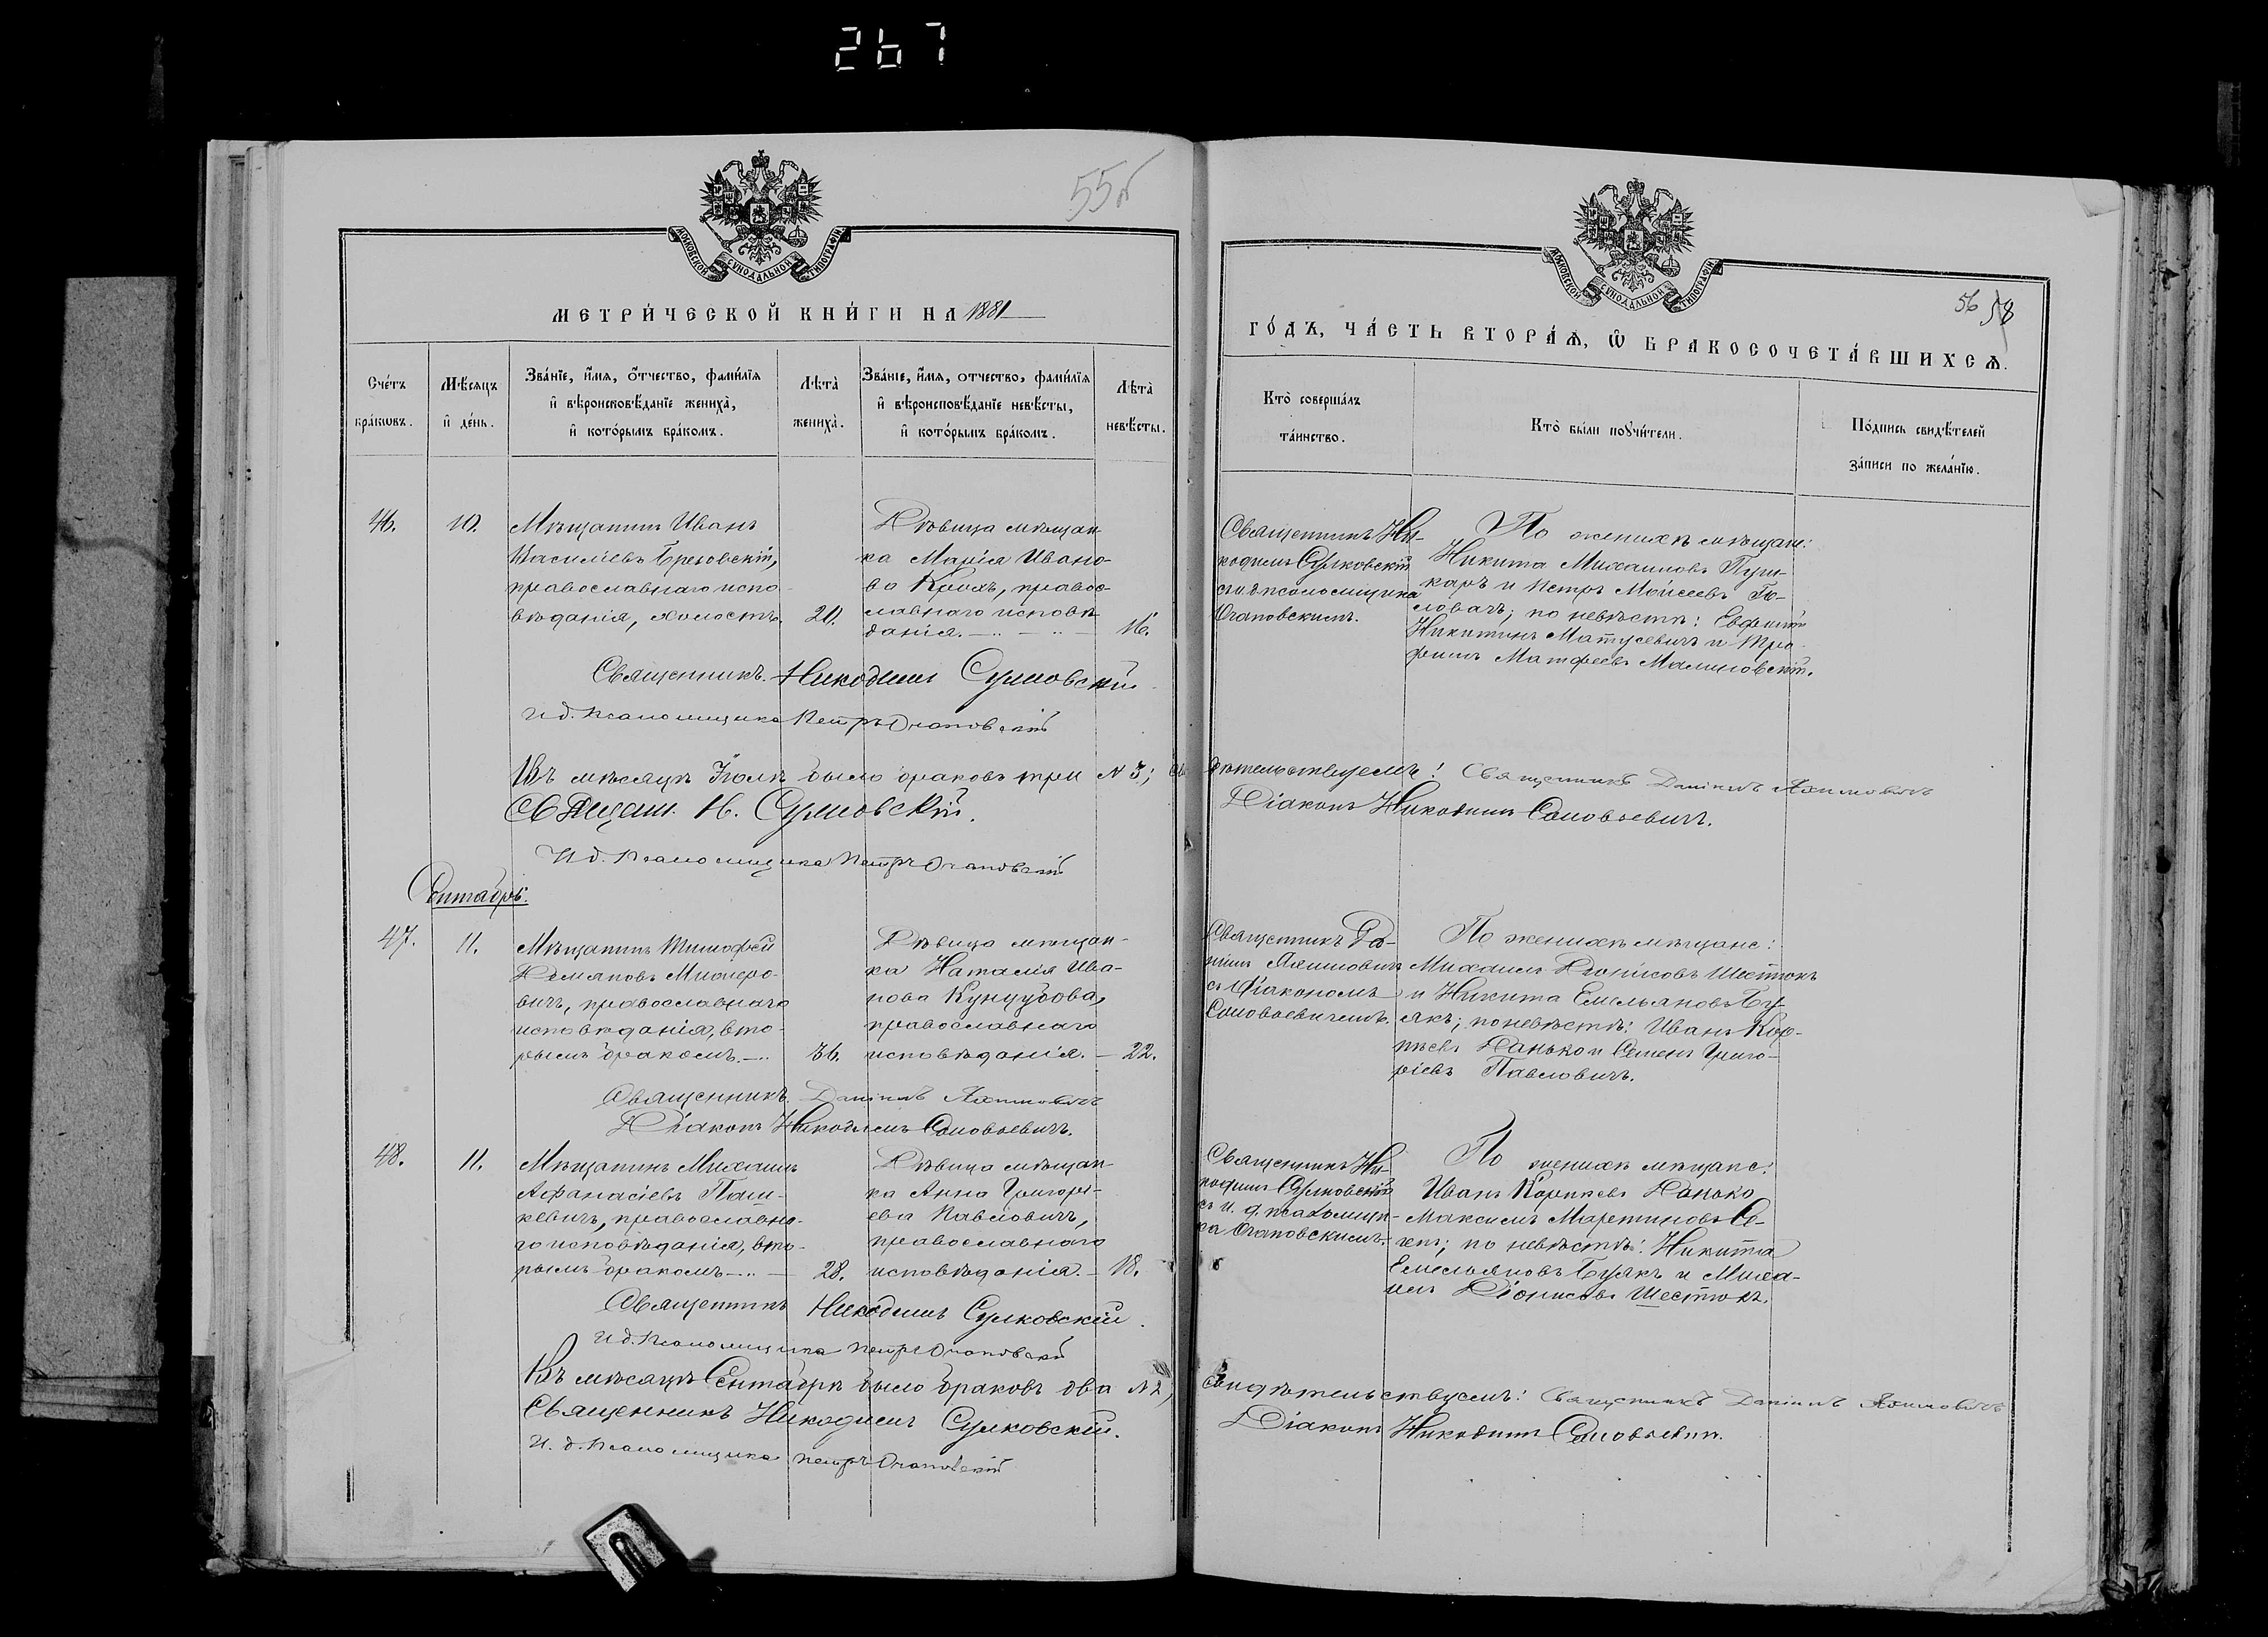 267
55б
МОСКОВСКОЙ СѴНОДАЛЬНОЙ ТИПОГРАФІИ
МЕТРИ́ЧЕСКОЙ КНИ́ГИ НА 1881
Сче́тъ бра́ковъ.
Мѣ́сяцъ и҆ де́нь.
Зва́нїе, и҆́мя, о҆́тчество, фами́лїя
и҆ вѣроисповѣ́данїе жениха̀,
и҆ кото́рымъ бра́комъ.
Лѣта̀ жениха̀.
Зва́нїе, и҆́мя, отчество, фами́лїя
и҆ вѣроисповѣ́данїе невѣ́сты,
и҆ кото́рымъ бра́комъ.
Лѣта̀ невѣ́сты.
46.
10.
Мѣщанинъ Иванъ
Василіевъ
православнаго испо-
вѣданія, холостъ.
20.
Дѣвица мѣщан-
ка Марія Ивано-
ва правос-
лавнаго исповѣ-
данія.
16.
Священникъ Никодимъ Сулковскій
И д. Псаломщика Петръ Очаповскій
Въ мѣсяцѣ Іюлѣ было браковъ три № 3; сви
Священ. Н. Сулковскій.
И д. Псаломщика Петръ Очаповскій
Сентябрь.
47.
11.
Мѣщанинъ Тимофей
Демяновъ
вичъ, православнаго
исповѣданія, вто-
рымъ бракомъ.
36.
Дѣвица мѣщан-
ка Наталія Ива-
нова Кунцубова,
православнаго
исповѣданія.
22.
Священникъ Даніилъ Яхимовичъ
Діаконъ Никодимъ Соловьевичъ.
48.
11.
Мѣщанинъ Михаилъ
Афанасіевъ Паш-
кевичъ, православна-
го исповѣданія, вто-
рымъ бракомъ
28.
Дѣвица мѣщан-
ка Анна Григорі-
ева Павловичъ,
православнаго
исповѣданія.
18.
Священникъ Никодимъ Сулковскій.
И д. Псаломщика Петръ Очаповскій
Въ мѣсяцѣ Сентябрѣ было браковъ два № 2,
Священникъ Никодимъ Сулковскій.
И. д. Псаломщика Петръ Очаповскій
МОСКОВСКОЙ СѴНОДАЛЬНОЙ ТИПОГРАФІИ
56 58
ГО́ДЪ, ЧА́СТЬ ВТОРА́Ѧ, Ѽ БРАКОСОЧЕТА́ВШИХСѦ.
Кто̀ соверша́лъ та́инство.
Кто̀ бы́ли поꙋчи́тели.
По́дпись свидѣ́телей
за́писи по жела́нїю.
Священникъ Ни-
кодимъ Сулковскій
съ псаломщика
Очаповскимъ.
По женихѣ мѣщане:
Никита Михаиловъ Пуш-
каръ и Петръ Моисеевъ Го-
ловачъ; по невѣстѣ: Евфимій
Никитинъ Матусевичъ и Тро-
фимъ Матфеевъ Малиновскій.
дѣтельствуемъ: Священникъ Даніилъ Яхимовичъ
Діаконъ Никодимъ Соловьевичъ.
Священникъ Да-
ніилъ Яхимовичъ
съ Діакономъ
Соловьевичемъ.
По женихѣ мѣщане:
Михаилъ Діонисовъ Шестюкъ
и Никита Емельяновъ Бу-
якъ; по невѣстѣ: Иванъ Кор-
нѣевъ Данько и Семенъ Григо-
ріевъ Павловичъ.
Священникъ Ни-
кодимъ Сулковскій
съ и. д. псаломщи-
ка Очаповскимъ.
По женихѣ мѣщане:
Иванъ Корнѣевъ Данько
Максимъ Мартиновъ Се-
по невѣстѣ: Никита
Емельяновъ Буякъ и Миха-
илъ Діонисовъ Шестюкъ.
свидѣтельствуемъ: Священникъ Даніилъ Яхимовичъ
Діаконъ Никодимъ Соловьевич.